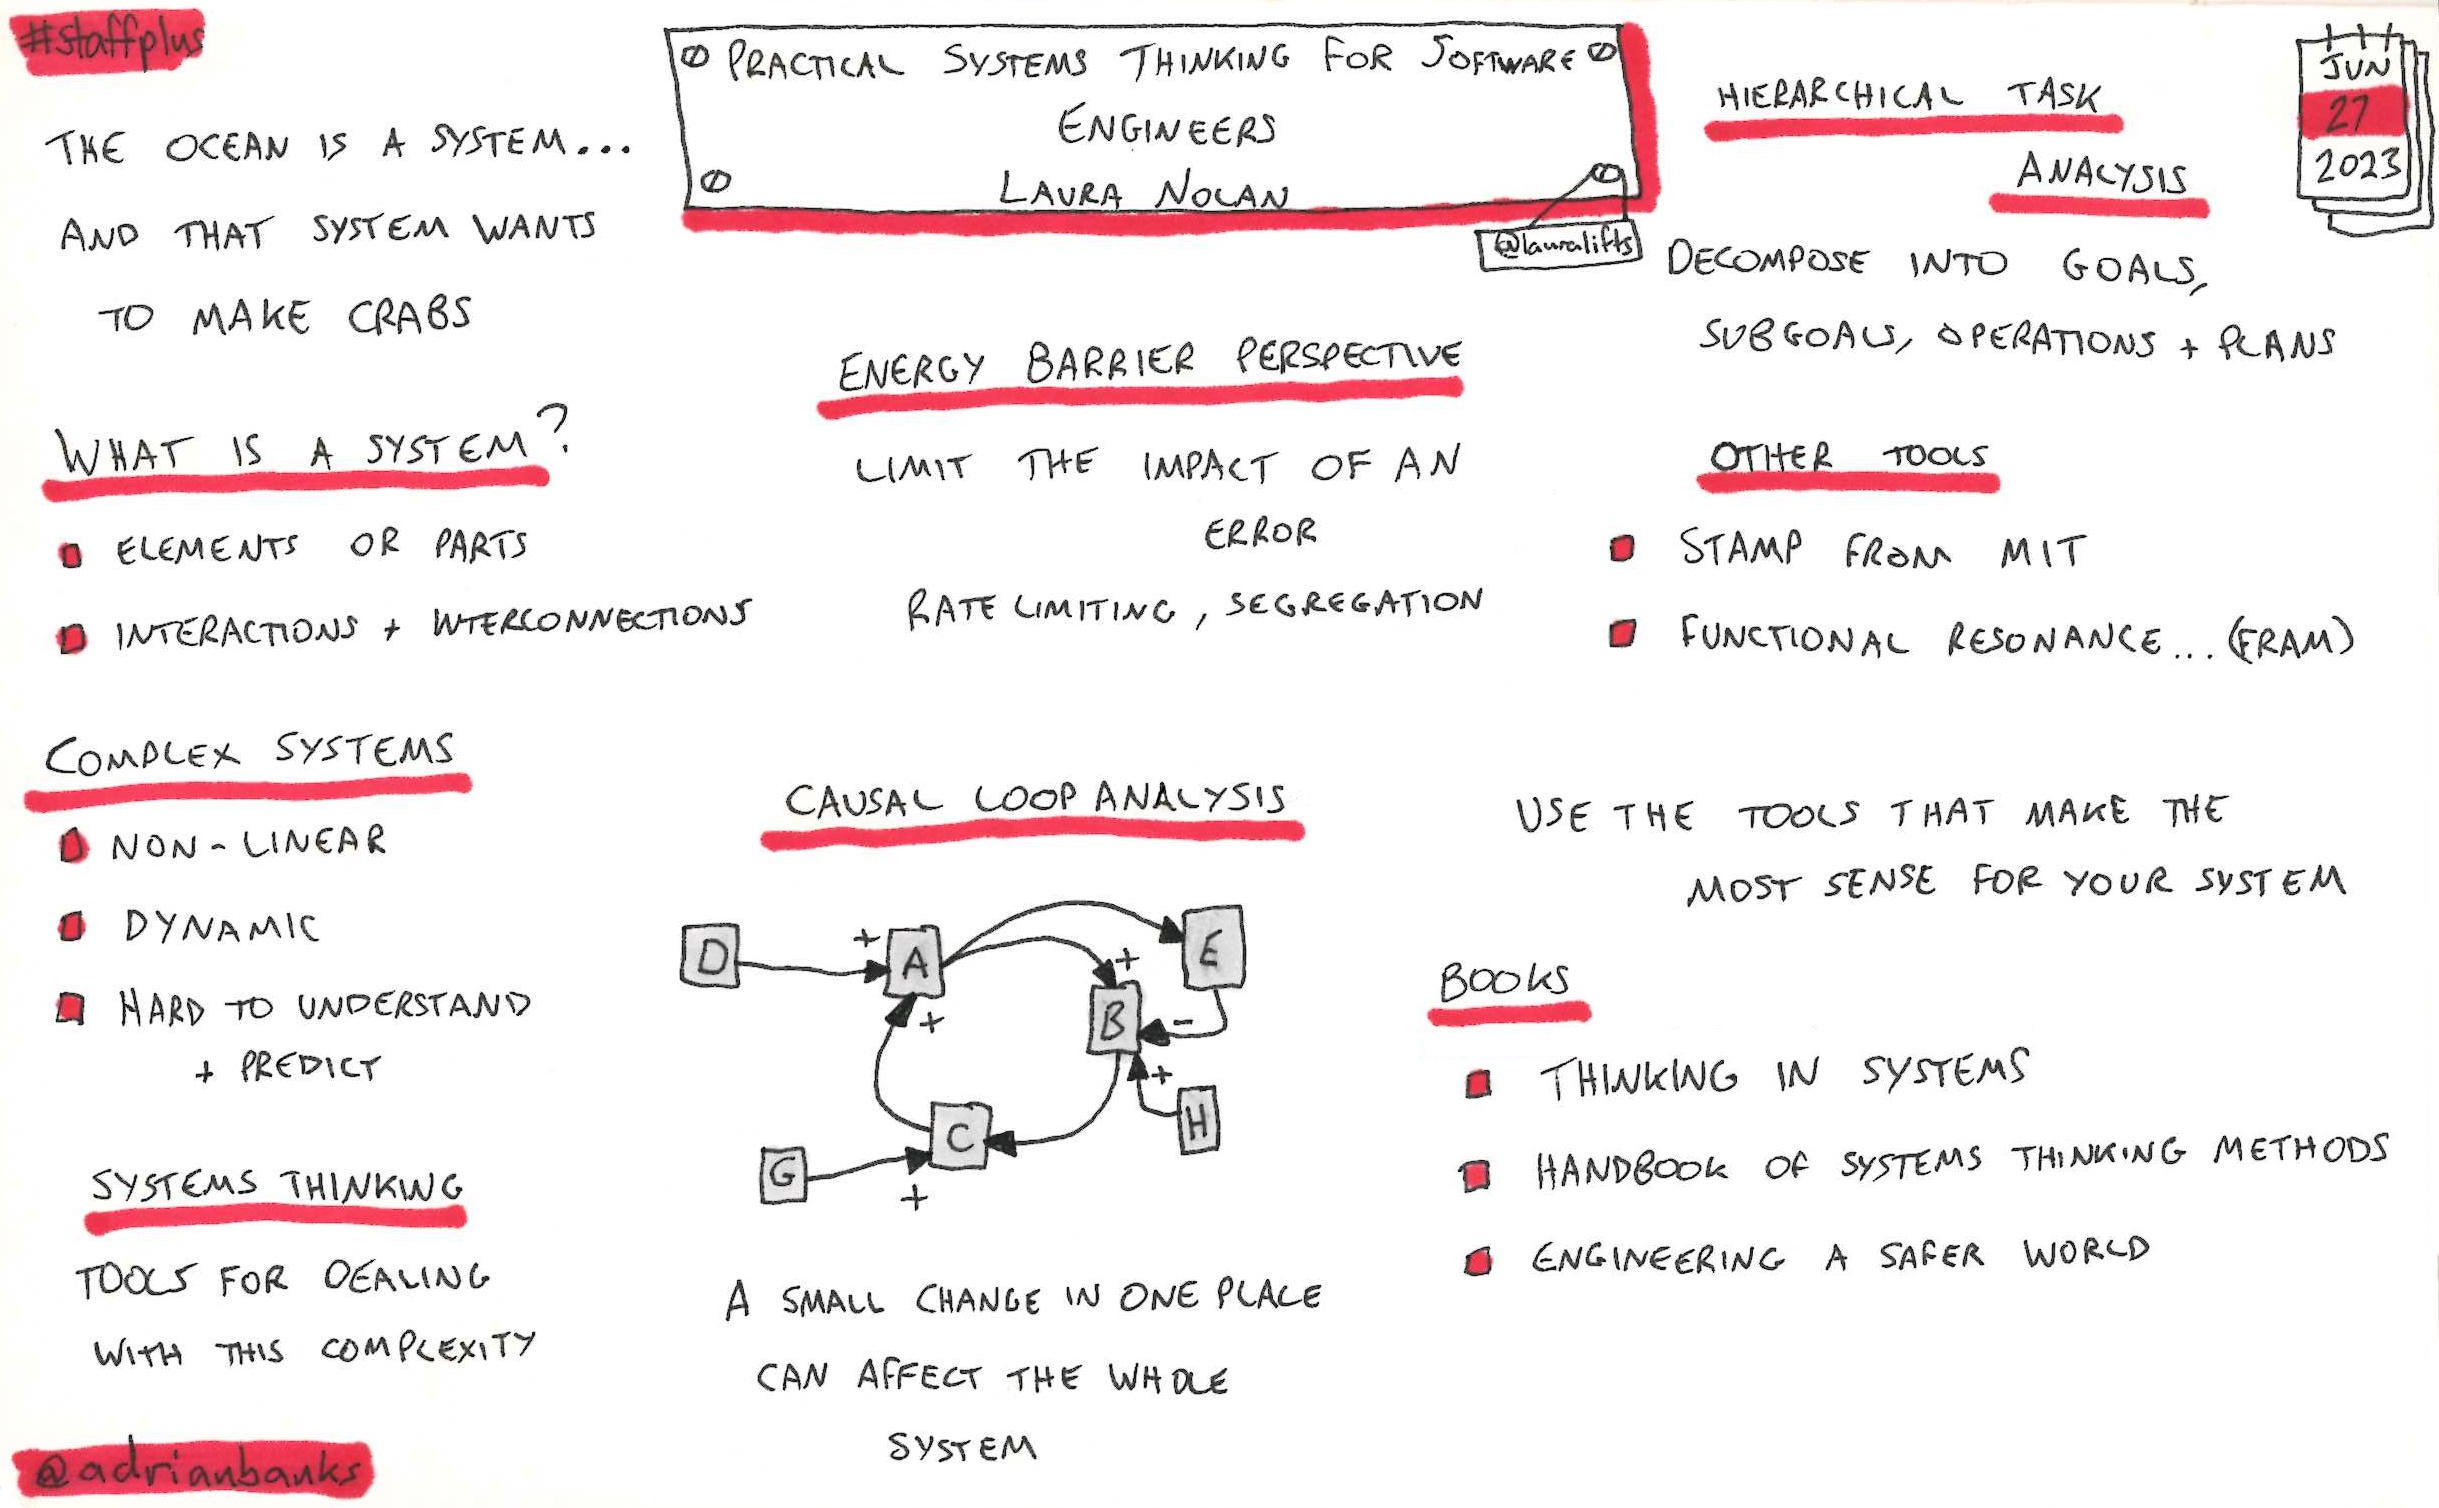 #staffplus
PRACTICAL SYSTEMS THINKING FOR SOFTWARE
ENGINEERS
LAURA NOLAN
@lauralifts
JUN
27
2023
THE OCEAN IS A SYSTEM...
AND THAT SYSTEM WANTS
TO MAKE CRABS
WHAT IS A SYSTEM?
ELEMENTS OR PARTS
INTERACTIONS + INTERCONNECTIONS
COMPLEX SYSTEMS
NON-LINEAR
DYNAMIC
HARD TO UNDERSTAND
+ PREDICT
SYSTEMS THINKING
TOOLS FOR DEALING
WITH THIS COMPLEXITY
@adrianbanks
ENERGY BARRIER PERSPECTIVE
LIMIT THE IMPACT OF AN
ERROR
RATE LIMITING, SEGREGATION
CAUSAL LOOP ANALYSIS
D + A E
+ B -
+
+ H
C
G +
A SMALL CHANGE IN ONE PLACE
CAN AFFECT THE WHOLE
SYSTEM
HIERARCHICAL TASK
ANALYSIS
DECOMPOSE INTO GOALS,
SUBGOALS, OPERATIONS + PLANS
OTHER TOOLS
STAMP FROM MIT
FUNCTIONAL RESONANCE... (FRAM)
USE THE TOOLS THAT MAKE THE
MOST SENSE FOR YOUR SYSTEM
BOOKS
THINKING IN SYSTEMS
HANDBOOK OF SYSTEMS THINKING METHODS
ENGINEERING A SAFER WORLD